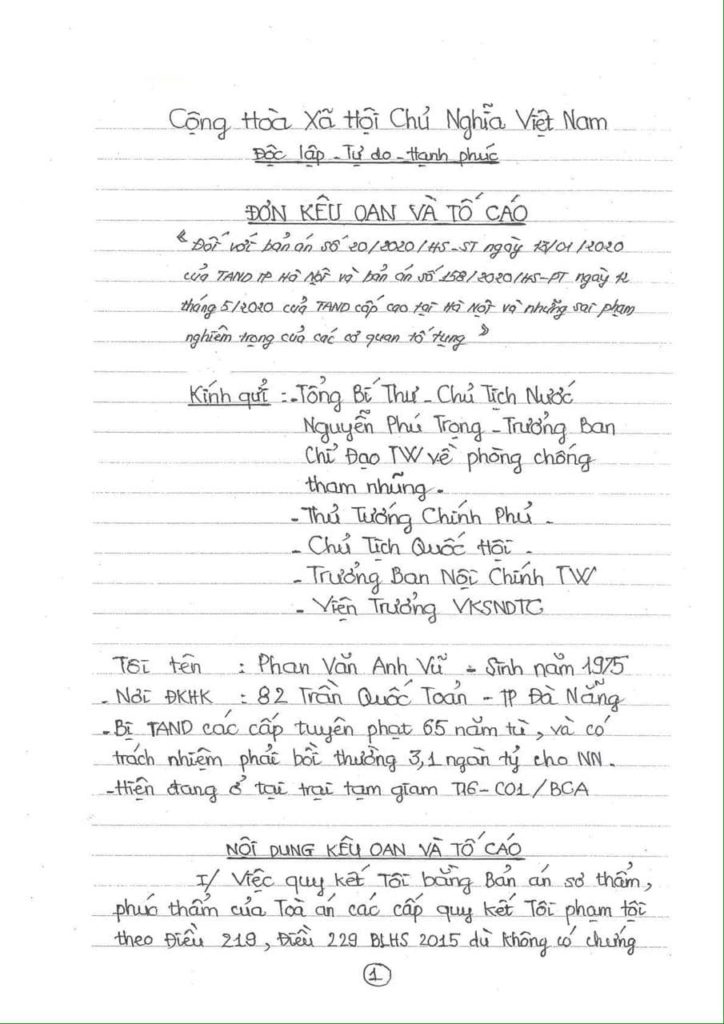 Cộng Hòa Xã Hội Chủ Nghĩa Việt Nam
Độc lập - Tự do - Hạnh phúc
ĐƠN KÊU OAN VÀ TỐ CÁO
"Đối với bản án số 20/2020/HS-ST ngày 13/01/2020
của TAND TP Hà Nội và bản án số 158/2020/HS-PT ngày 12
tháng 5/2020 của TAND cấp cao tại Hà Nội và những sai phạm
nghiêm trọng của các cơ quan tố tụng"
Kính gửi : - Tổng Bí Thư - Chủ Tịch Nước
Nguyễn Phú Trọng - Trưởng Ban
Chỉ Đạo TW về phòng chống
tham nhũng.
- Thủ Tướng Chính Phủ.
- Chủ Tịch Quốc Hội.
- Trưởng Ban Nội Chính TW
- Viện Trưởng VKSNDTC
Tôi tên : Phan Văn Anh Vũ - Sinh năm 1975
- Nơi ĐKHK : 82 Trần Quốc Toản - TP Đà Nẵng
- Bị TAND các cấp tuyên phạt 65 năm tù, và có
trách nhiệm phải bồi thường 3,1 ngàn tỷ cho NN.
- Hiện đang ở tại trại tạm giam T16-C01/BCA
NỘI DUNG KÊU OAN VÀ TỐ CÁO
I/ Việc quy kết Tôi bằng Bản án sơ thẩm,
phúc thẩm của Toà án các cấp quy kết Tôi phạm tội
theo Điều 219, Điều 229 BLHS 2015 dù không có chứng
1